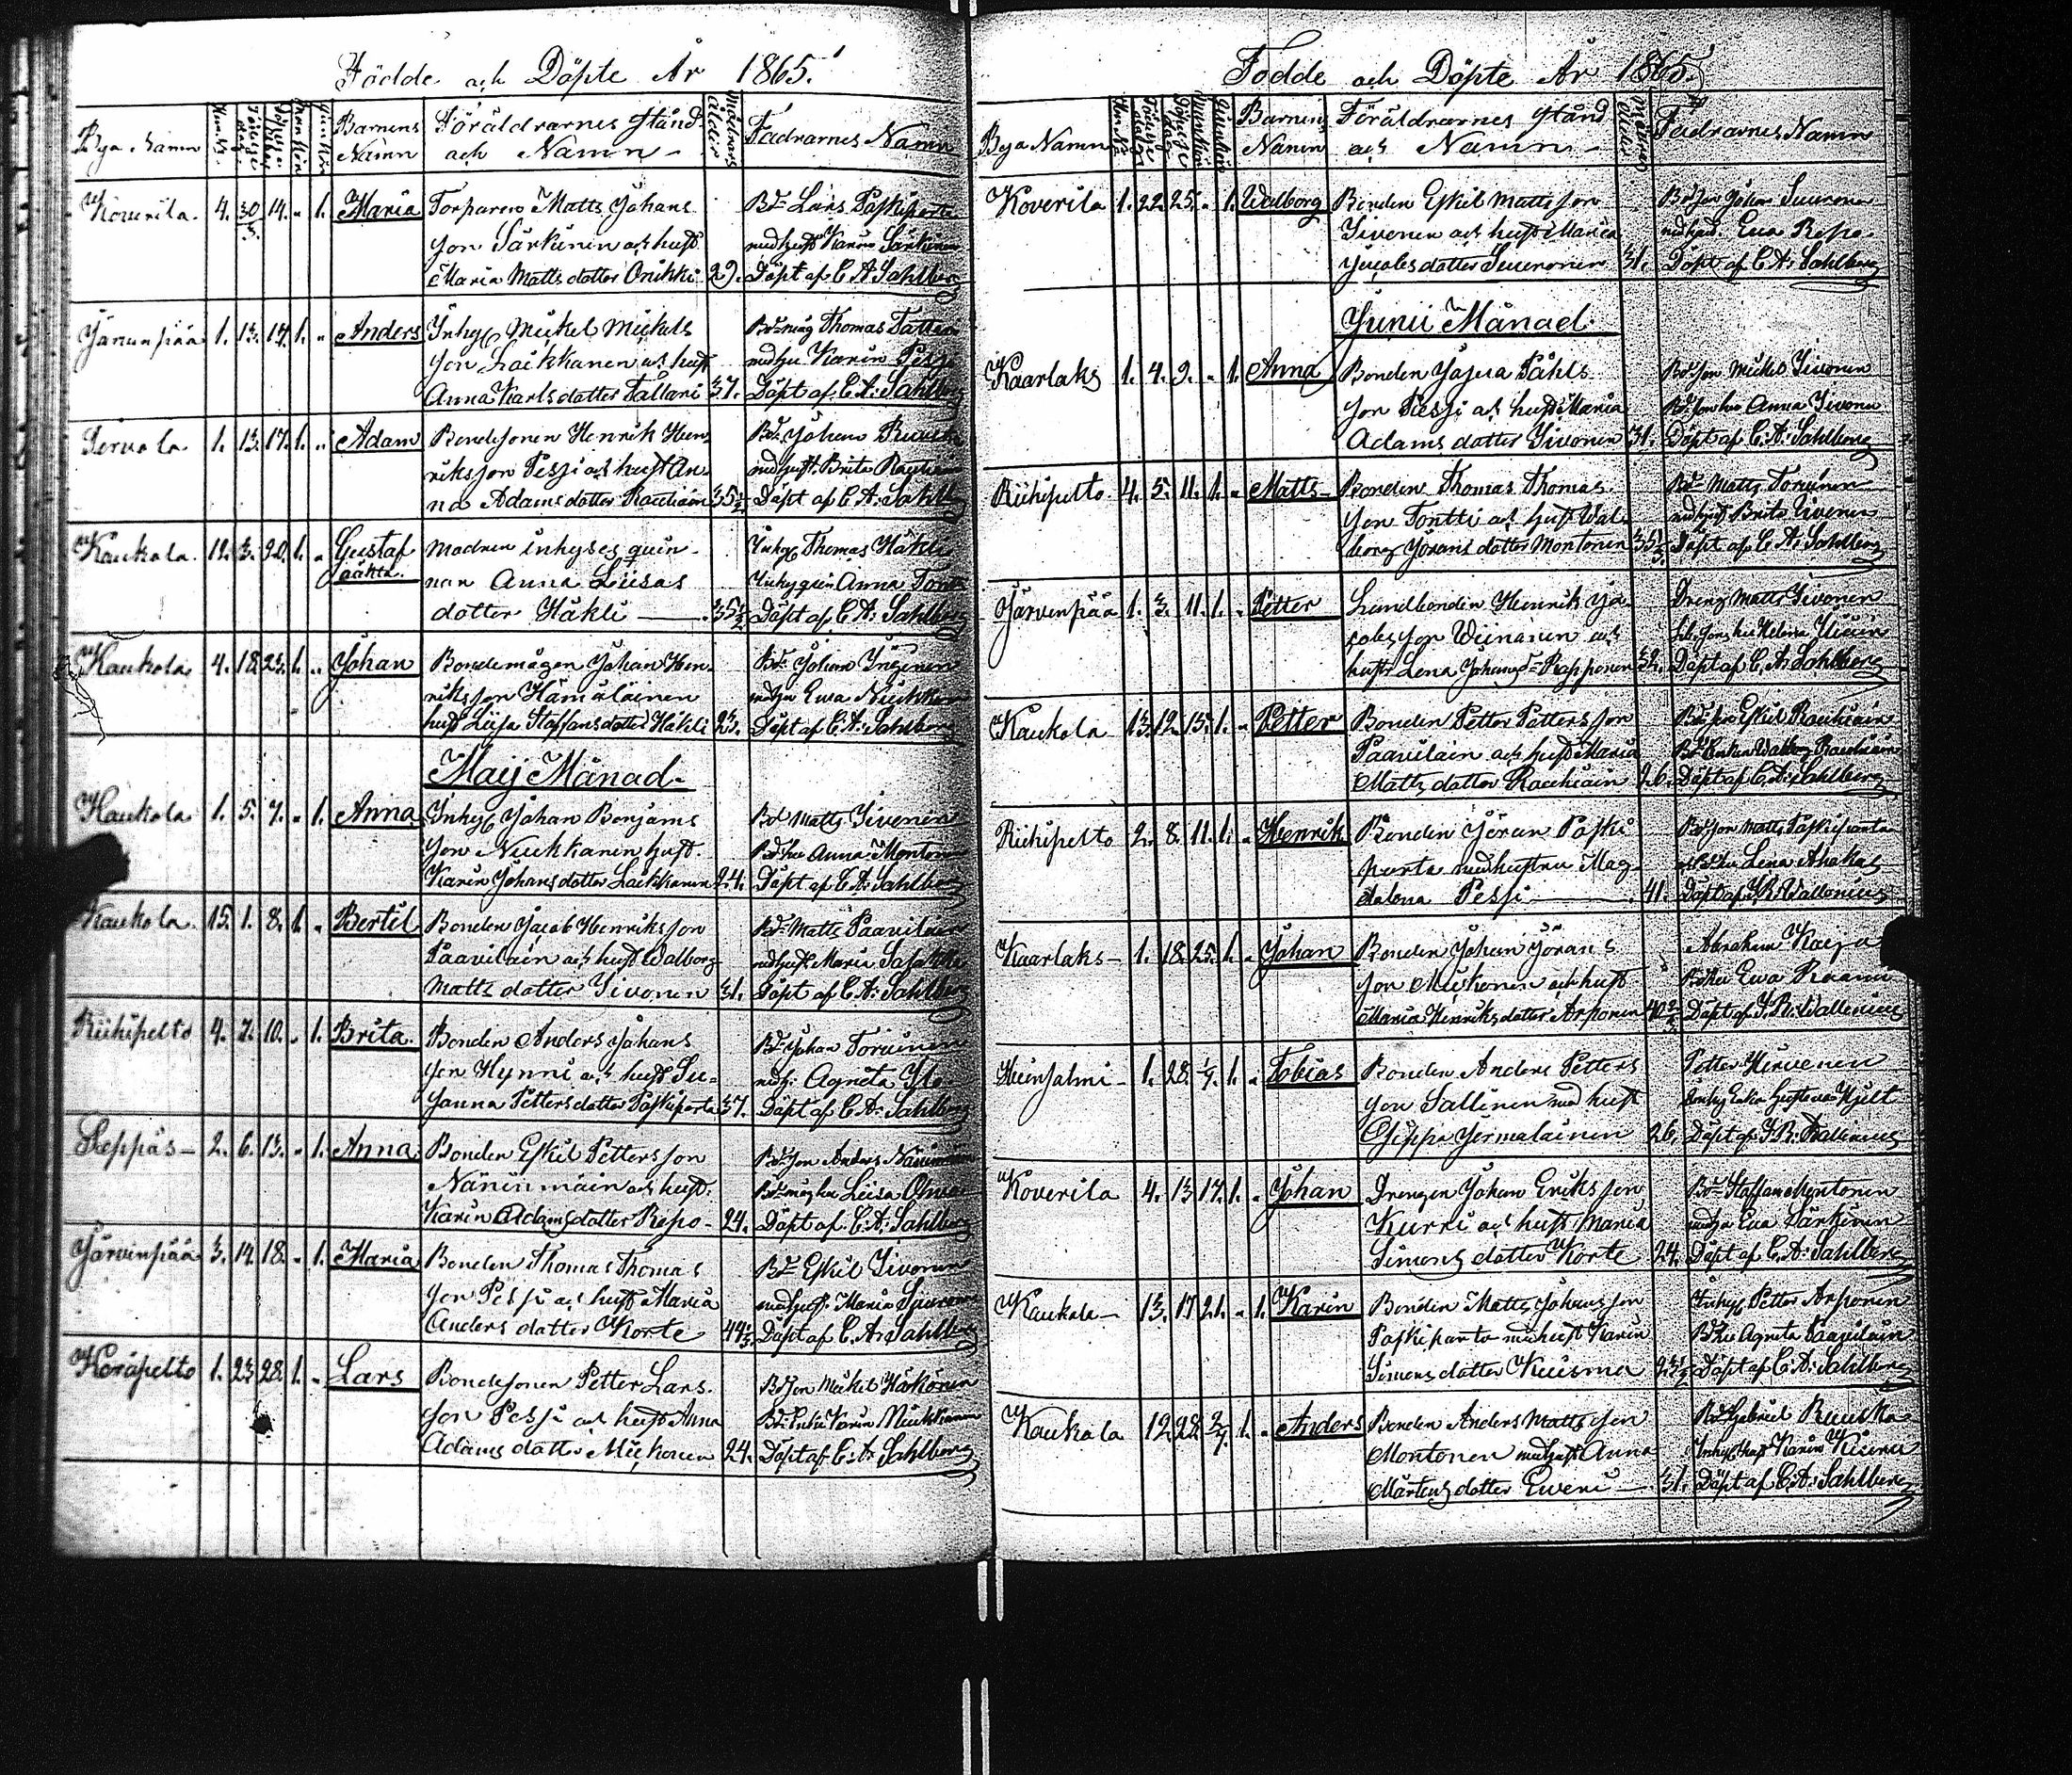 Födde och Döpte År 1865.
Bya Namn
Barnens Namn
Föräldrarnes stånd och Namn
Fadrarnes Namn
Koverila. 4. 30 14. „ 1. Maria Torparen Matts Johans
son Särkinen och hust
Maria Matts dotter Onikki 29.
Bd Lars Paskiparta
med hust Karin Särkinen
Döpt af C A Sahlberg
Järvenpää 1. 13. 14. 1. „ Anders Inhys Mickel Mickels
son Laikkanen och hust
Anna Karls dotter Tattari 37.
Bdemåg Thomas Tattari
med hu Karin Pessi
Döpt af C. A. Sahlberg
1. 13. 17. 1. „ Adam Bondesonen Henrik Hen
riksson Pessi och hust An
na Adamsdotter Rauhiain 35½
Bd: Johan
med hust. Brita Rauhiain
Döpt af C. A. Sahlb
Kaukola. 12. 3. 20. 1. „ Gustaf oäkta. Modren inhyses quin
nan Anna Liisas
dotter Häkli 35½
Inhys Thomas Häkli
Inhys quin Anna
Döpt af C A: Sahlberg
Kaukola 4. 18. 23. 1. „ Johan Bondemågen Johan Hen
riksson Hämäläinen
hust Liisa Staffansdotter Häkli 23.
Bd: Johan Inginen
med hu Ewa Nuikkan
Döpt af C. A: Sahlberg
Maij Månad
Kaukola 1. 5. 7. „ 1. Anna Inhys Johan Benjams
son Nuikkanen hust.
Karin Johansdotter Laikkanen 24.
Bd Matts Sivonen
Bd hu Anna Montonen
Döpt af C A: Sahlberg
Kaukola 15. 1. 8. 1. „ Bertil Bonden Jacob Henriksson
Paavilain och hust Walborg
Matts dotter Sivonen 31.
Bd Matts Paavilain
med hust. Maria
Döpt af C A: Sahlberg
Riihipelto 4. 7. 10. „ 1. Brita. Bonden Anders Johans
son Hynni och hust Su=
sanna Petters dotter Paskiparta 37.
Bd Johan Torninen
med h: Agneta
Döpt af C. A: Sahlberg
2. 6. 13. „ 1. Anna Bonden Eskil Pettersson
Näninmäin och hust.
Karin Adamsdotter Repo 24.
Bd son Anders Näninmäin
Bd måg hu Liisa
Döpt af C. A: Sahlberg
Järvinpää 3. 14. 18. „ 1. Maria Bonden Thomas Thomas
son Pessi och hust Maria
Anders dotter Korte
Bd Eskil Sivonen
med hust. Maria Suuronen
Döpt af C. A. Sahlberg
Koräpelto 1. 23. 28. 1. „ Lars Bondesonen Petter Lars
son Pessi och hust Anna
Adams dotter Miikonen 24.
Bd son Mickel Häkönen
Bd: Enka Karin Nuikkanen
Döpt af C: A Sahlberg
Födde och Döpte År 1865.
Bya Namn
Barnens Namn
Föräldrarnes stånd och Namn
Fadrarnes Namn
Koverila 1. 22. 25. „ 1. Walborg Bonden Eskil Matts son
Sivonen och hust Maria
Jacobs dotter Suuronen 31.
Bd son Johan Suuronen
med hust. Ewa Repo
Döpt af C A: Sahlberg
Junii Månad
Kaarlaks 1. 4. 9. „ 1. Anna Bonden Påhls
son Pessi och hust Maria
Adams dotter Sivonen 31.
Bd son Mickel Sivonen
Bd son hu Anna Sivonen
Döpt af C. A: Sahlberg
Riihipelto 4. 5. 11. 1. „ Matts Bonden Thomas Thomas
son Tontti och hust Wal
borg Jörans dotter Montonen 35½
Bd Matts Torninen
med hust Brita Sivonen
Döpt af C A. Sahlberg
Järvenpää 1. 3. 11. 1. „ Petter Landbonden Henrik Ja
cobsson Wiinanen och
hust Lena Johansd Repponen 32.
Dreng Matts Sivonen
Döpt af C. A: Sahlberg
Kaukola 13. 12. 15. 1. „ Petter Bonden Petter Petters son
Paavilain och hust Maria
Matts dotter Rauhiain 26.
Bd son Eskil Rauhiain
Walborg Rauhiain
Döpt af C. A: Sahlberg
Riihipelto 2. 8. 11. 1. „ Henrik Bonden Jöran Paski
parta med hustru Mag
dalena Pessi 41.
Bd son Matts Paskiparta
Lena Ahokas
Döpt af J. R. Wallenius
Kaarlaks 1. 18. 25. 1. „ Johan Bonden Johan Jörans
son Miikonen och hust
Maria Henriks dotter Arponen
Abraham Kaipa
Bd hu Ewa
Döpt af J. R. Wallenius
1. 28. 1/7. 1. „ Tobias Bonden Anders Petters
son Sallinen med hust
Jermalainen 26.
Petter Hirvenen
Döpt af J R. Wallenius
Koverila 4. 13 17. 1. „ Johan Drengen Johan Eriksson
Kurri och hust Maria
Simons dotter Korte 24.
Bd Staffan Montonen
med hu Eva Särkinen
Döpt af C. A: Sahlberg
Kaukola 13. 17. 21. „ 1. Karin Bonden Matts Johansson
Paskiparta med hust Karin
Simons dotter Kuisma 23½
Inhys Petter Arponen
Bd hu Agneta Paavilain
Döpt af C. A: Sahlberg
Kaukola 12. 28. 2/7. 1. „ Anders Bonden Anders Mattsson
Montonen med hust Anna
Mårtens dotter Eweri 31.
Bd Gabriel Ruuska
Döpt af C. A: Sahlberg